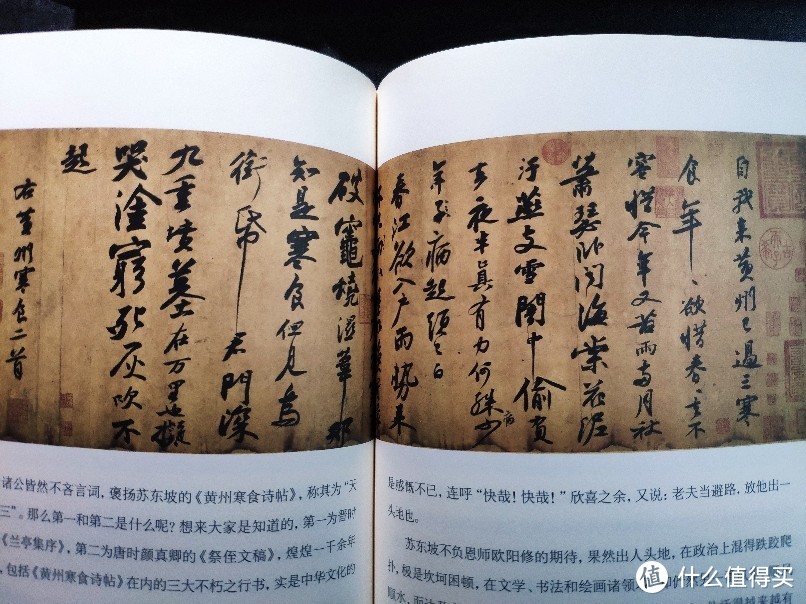 自我来黄州已過三寒
食年〻欲惜春〻去不
容惜今年又苦雨两月秋
蕭瑟卧聞海棠花泥
汙燕支雪闇中偷負
去夜半真有力何殊少
病
年子病起須已白
春江欲入户雨勢来
破竈燒濕葦那
知是寒食但見烏
銜帋君門深
九重墳墓在万里也擬
哭塗窮死灰吹不
起
右黄州寒食二首
诸公皆然不吝言词，褒扬苏东坡的《黄州寒食诗帖》，称其为“天
三”。那么第一和第二是什么呢？想来大家是知道的，第一为晋时
《兰亭集序》，第二为唐时颜真卿的《祭侄文稿》，煌煌一千余年
，包括《黄州寒食诗帖》在内的三大不朽之行书，实是中华文化的
是感慨不已，连呼“快哉！快哉！”欣喜之余，又说：老夫当避路，放他出一
头毛也。
苏东坡不负恩师欧阳修的期待，果然出人头地，在政治上混得跌跤爬
扑，极是坎坷困顿，在文学、书法和绘画诸领
顺水，
值 什么值得买